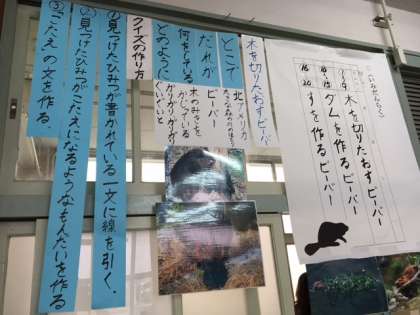 〈いみだんらく〉
1〜9 木を切りたおすビーバー
ダムを作るビーバー
すを作るビーバー
木を切りたおすビーバー
どこで
北アメリカ
だれが
ビーバー
何をしている
木のみきを
かじっている
どのように
ガリガリ、ガリガリ
クイズの作り方
①見つけたひみつが書かれている一文に線を引く。
②見つけたひみつがこたえになるようなもんだいを作る
③「こたえ」の文を作る。